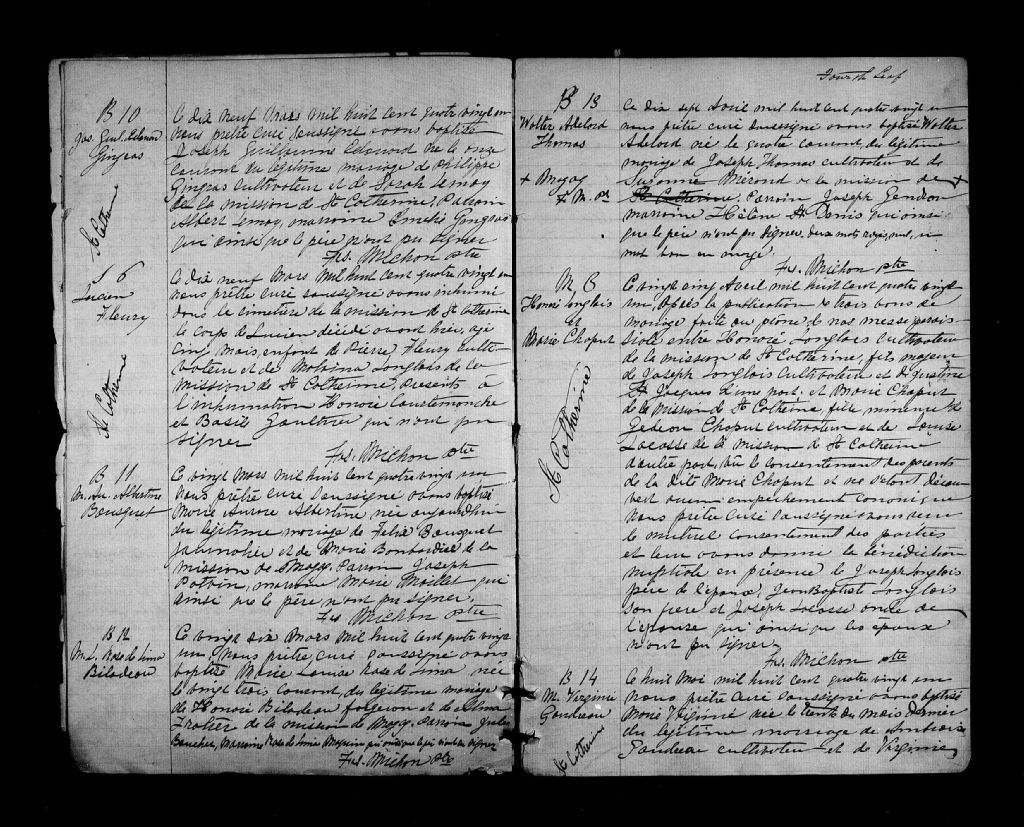 B 10
Jos. Guil. Edouard
Gingras
St Catherine
Ce dix neuf Mars mil huit cent quatre vingt un
nous prêtre curé soussigné avons baptisé
Joseph Guillaume Edouard né le onze
courant du légitime mariage de Philippe
Gingras cultivateur et de Sarah Lemay
de la mission de St Catherine, Parrain
Albert Lemay, marraine Emélie Gingras
qui ainsi que le père n'ont pu signer
Frs. Michon ptre
S 6
Lucien
Fleury
St Catherine
Ce dix neuf Mars mil huit cent quatre vingt un
nous prêtre curé soussigné avons inhumé
dans le cimetière de la mission de St Catherine
le corps de Lucien décédé avant hier, agé
cinq mois, enfant de Pierre Fleury culti-
vateur et de Longlois de la
mission de St Catherine, Présents à
l'inhumation Honoré Courtemanche
et Basile Gauthier qui n'ont pu
signer
Frs. Michon ptre
B 11
M. Au. Albertine
Bousquet
Ce vingt Mars mil huit cent quatre vingt un
nous prêtre curé soussigné avons baptisé
Marie Aurore Albertine née aujourd'hui
du légitime mariage de Félix Bousquet
journalier et de Marie Bombardier de la
mission de Magog. Parrain Joseph
Potvin, marraine Marie qui
ainsi que le père n'ont pu signer.
Frs Michon ptre
B 12
M. L. Rose de Lima
Bilodeau
Ce vingt six Mars mil huit cent quatre vingt
un, Nous prêtre curé soussigné avons
baptisé Marie Louise Rose de Lima née
le vingt trois courant, du légitime mariage
de Honoré Bilodeau forgeron et de
de la mission de Magog. Parrain Jules
Boucher, Marraine Rose de Lima qui ainsi que le père n'ont pu signer
Frs. Michon ptre
Fourth Leaf
B 13
Walter Adelord
Thomas
+ Magog
F. M. ptre
Ce dix sept Avril mil huit cent quatre vingt un
nous prêtre curé soussigné avons baptisé Walter
Adelord né le quatre courant, du légitime
mariage de Joseph Thomas cultivateur et de
Suzanne de la mission de +
St Catherine. Parrain Joseph Gendron
marraine Hélène St Denis qui ainsi
que le père n'ont pu signer. deux mots rayés nuls, un
mot bon en marge.
Frs. Michon ptre
M. 6
Honoré Longlois
et
Marie Chaput
St Catherine
Ce vingt cinq Avril mil huit cent quatre vingt
un, après la publication de trois bans de
mariage faite au prône de nos messes parois-
siales entre Honoré Longlois cultivateur
de la mission de St Catherine, fils majeur
de Joseph Longlois cultivateur et de Justine
St Jacques d'une part. et Marie Chaput
de la mission de St Catherine, fille mineure de
Gédéon Chaput cultivateur et de Louise
Lacasse de la mission de St Catherine
d'autre part, Vû le consentement des parents
de la dite Marie Chaput et ne s'étant décou-
vert aucun empêchement canonique
nous prêtre curé soussigné avons reçu
le mutuel consentement des parties
et leur avons donné la bénédiction
nuptiale en présence de Joseph Longlois
père de l'époux, Jean Baptiste Longlois
son frère et Joseph Lacasse oncle de
l'épouse qui ainsi que les époux
n'ont pu signer
Frs. Michon ptre
B 14
M. Virginie
Gaudreau
St Catherine
Ce huit Mai mil huit cent quatre vingt un
nous prêtre curé soussigné avons baptisé
Marie Virginie née le trente du mois dernier
du légitime mariage de Ambroise
Gaudreau cultivateur et de Virginie